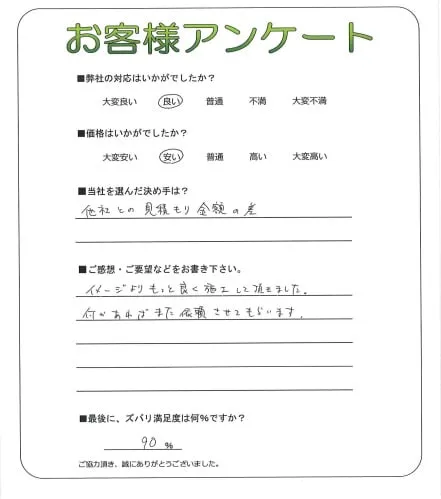 お客様アンケート
■弊社の対応はいかがでしたか？
大変良い 良い 普通 不満 大変不満
■価格はいかがでしたか？
大変安い 安い 普通 高い 大変高い
■当社を選んだ決め手は？
他社との見積もり金額の差
■ご感想・ご要望などをお書き下さい。
イメージよりもっと良く施工して頂きました。
何かあればまた依頼させてもらいます。
■最後に、ズバリ満足度は何％ですか？
90 %
ご協力頂き、誠にありがとうございました。